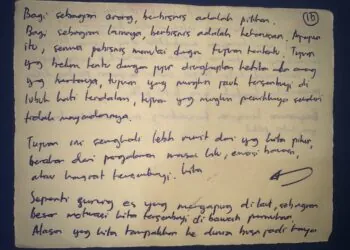 Bagi sebagian orang, berbisnis adalah pilihan. (15)
Bagi sebagian lainnya, berbisnis adalah keharusan. Apapun
itu, semua pebisnis memulai dengan tujuan tertentu. Tujuan
yang belum tentu dengan jujur diungkapkan ketika ada orang
yang bertanya, tujuan yang mungkin jauh tersembunyi di
lubuk hati terdalam, tujuan yang mungkin pemiliknya sendiri
tidak menyadarinya.
Tujuan ini seringkali lebih rumit dari yang kita pikir,
berakar dari pengalaman masa lalu, emosi
atau hasrat tersembunyi. Kita
Seperti gunung es yang mengapung di laut, sebagian
besar motivasi kita tersembunyi di bawah permukaan.
Alasan yang kita tampakkan ke dunia bisa jadi hanya